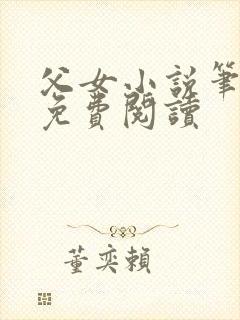 父女小説筆
免費閱讀
董奕賴